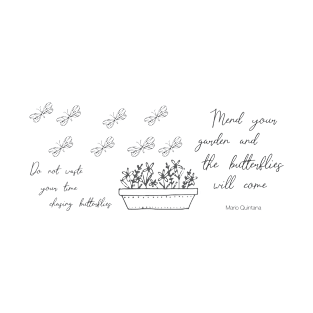 Do not waste
your time
chasing butterflies
Mend your
garden and
the butterflies
will come
Mario Quintana